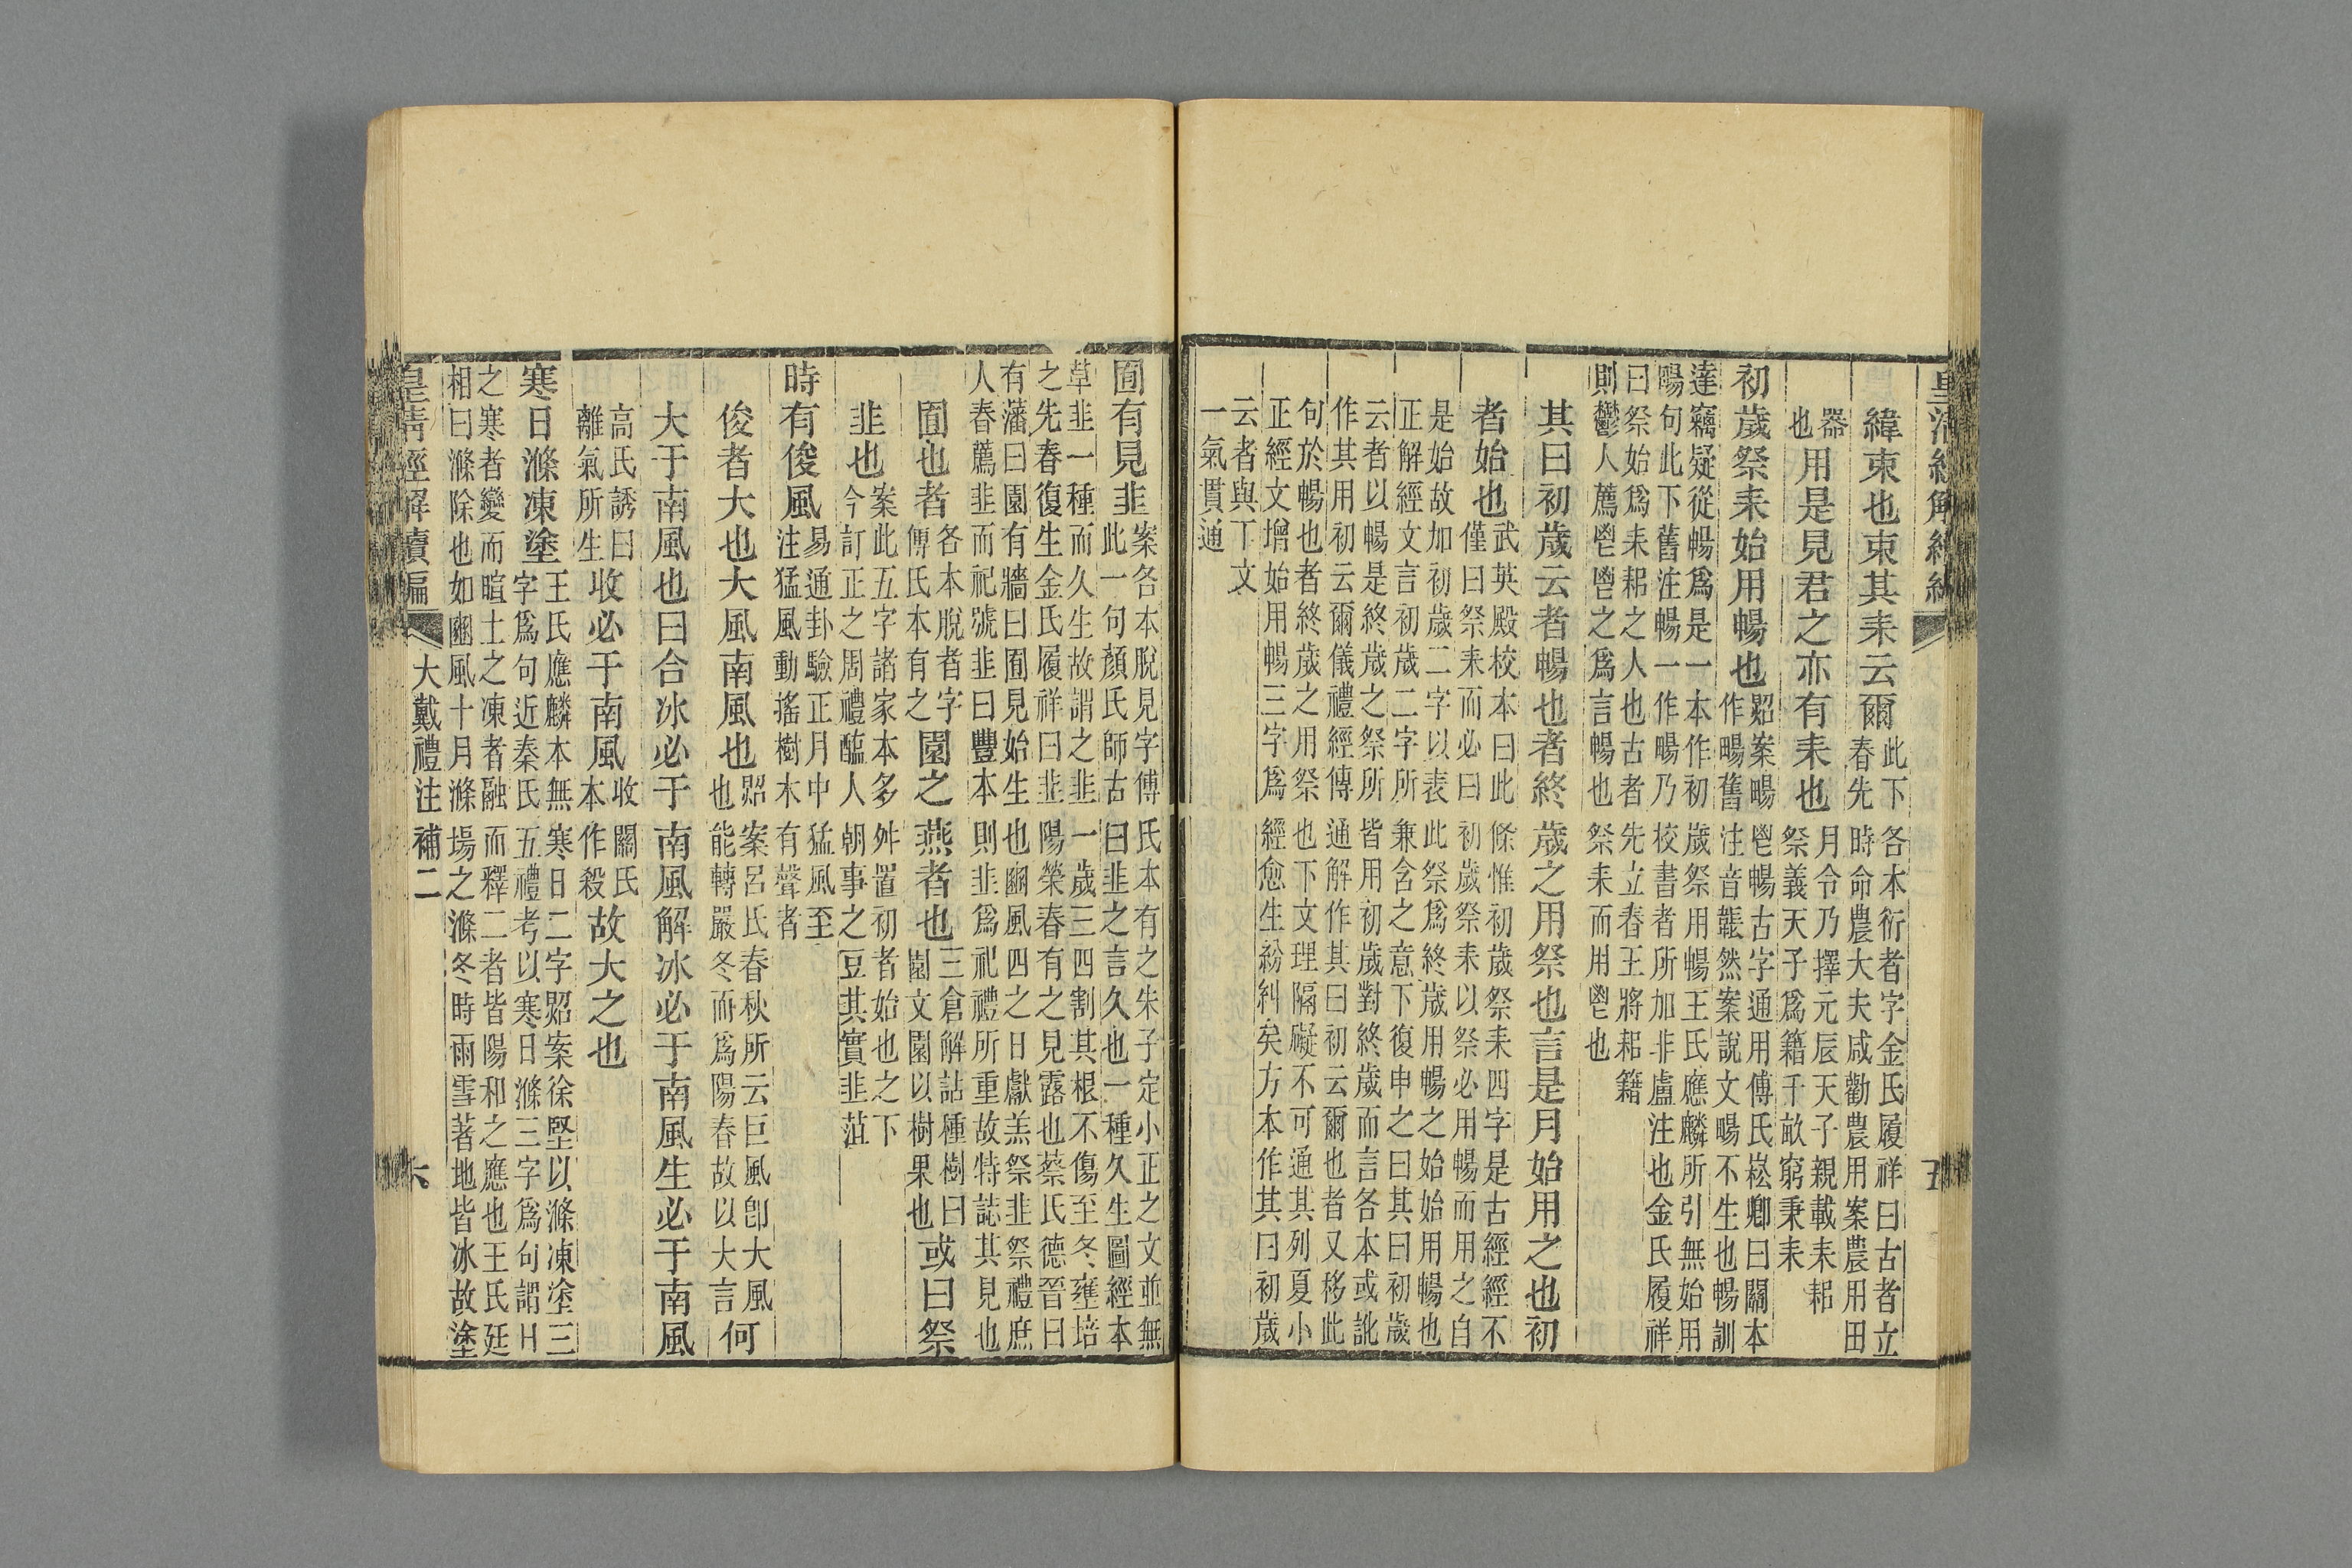 緯束也束其耒云爾此下各本衍者字金氏履祥曰古者立
春先時命農大夫咸勸農用案農用田
器
也用是見君之亦有耒也月令乃擇元辰天子親載耒耜
祭義天子爲籍千畝窮秉耒
初歲祭耒始用暢也炤案畼鬯暢古字通用傅氏崧卿曰關本
作畼舊注音韔然案說文畼不生也暢訓
達竊疑從暢爲是一本作初歲祭用暢王氏應麟所引無始用
陽句此下舊注暢一作畼乃校書者所加非盧注也金氏履祥
曰祭始爲耒耜之人也古者先立春王將耜籍
則鬱人薦鬯鬯之爲言暢也祭耒而用鬯也
其曰初歲云者暢也者終歲之用祭也言是月始用之也初
者始也武英殿校本曰此條惟初歲祭耒四字是古經經不
僅曰祭耒而必曰初歲祭耒以祭必用暢而用之自
是始故加初歲二字以表此祭爲終歲用暢之始始用暢也
正解經文言初歲二字所兼含之意下復申之曰其曰初歲
云者以暢是終歲之祭所皆用初歲對終歲而言各本或訛
作其用初云爾儀禮經傳通解作其曰初云爾也者又移此
句於暢也者終歲之用祭也下文理隔礙不可通其列夏小
正經文增始用暢三字爲經愈生紛糾矣方本作其曰初歲
云者與下文
一氣貫通
囿有見韭案各本脫見字傅氏本有之朱子定小正之文並無
此一句顏氏師古曰韭之言久也一種久生圖經本
草韭一種而久生故謂之韭一歲三四割其根不傷至冬壅培
之先春復生金氏履祥曰韭陽榮春有之見露也蔡氏德晉曰
有藩曰園有牆曰囿見始生也豳風四之日獻羔祭韭祭禮庶
人春薦韭而祀號韭曰豐本則韭爲祀禮所重故特誌其見也
囿也者各本脫者字
傅氏本有之園之燕者也三倉解詁種樹曰
園文園以樹果也或曰祭
韭也案此五字諸家本多舛置初者始也之下
今訂正之周禮醢人朝事之豆其實韭菹
時有俊風易通卦驗正月中猛風至
注猛風動搖樹木有聲者
俊者大也大風南風也炤案呂氏春秋所云巨風卽大風
也能轉嚴冬而爲陽春故以大言何
大于南風也曰合冰必于南風解冰必于南風生必于南風
高氏誘曰
離氣所生收必于南風收關氏
本作殺故大之也
寒日滌凍塗王氏應麟本無寒日二字炤案徐堅以滌凍塗三
字爲句近秦氏五禮考以寒日滌三字爲句謂日
之寒者變而暄土之凍者融而釋二者皆陽和之應也王氏廷
相曰滌除也如豳風十月滌場之滌冬時雨雪著地皆冰故塗
皇清經解續編 大戴禮注補二 六